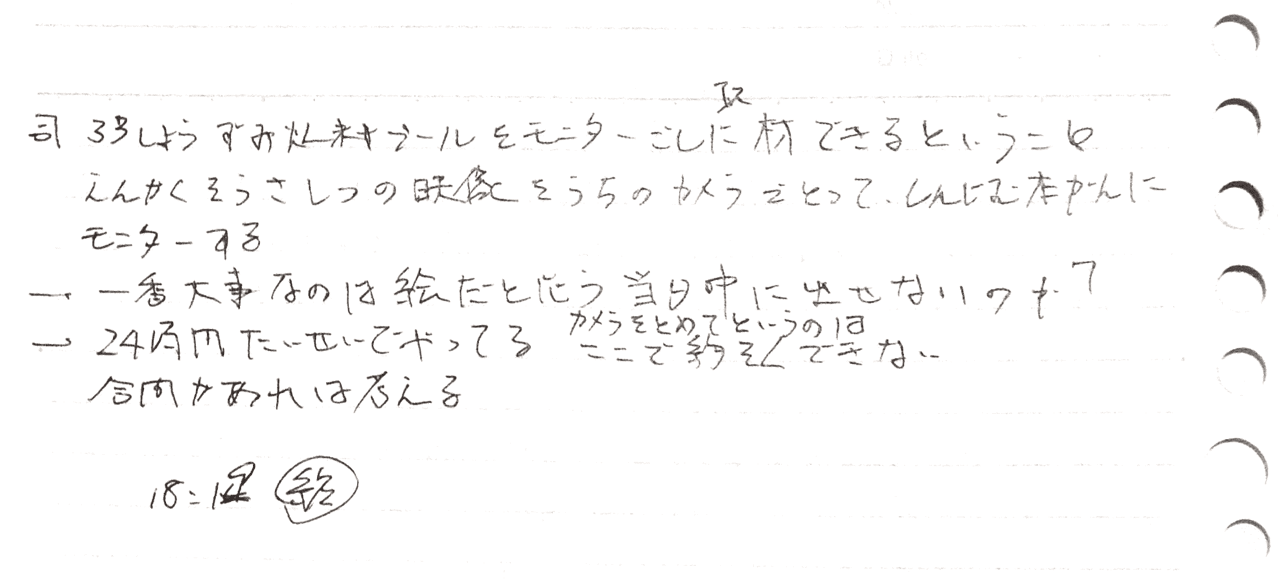 司 3号しようずみ燃料プールをモニターごしに取材できるということ
えんかくそうさしつの映像をうちのカメラでとって、しんじむ本かんに
モニターする
→ 一番大事なのは絵だと思う 当日中に出せないのか?
→ 24時間たいせいでやってる カメラをとめてというのは
ここで約そくできない
合間があれば考える
18:1 終